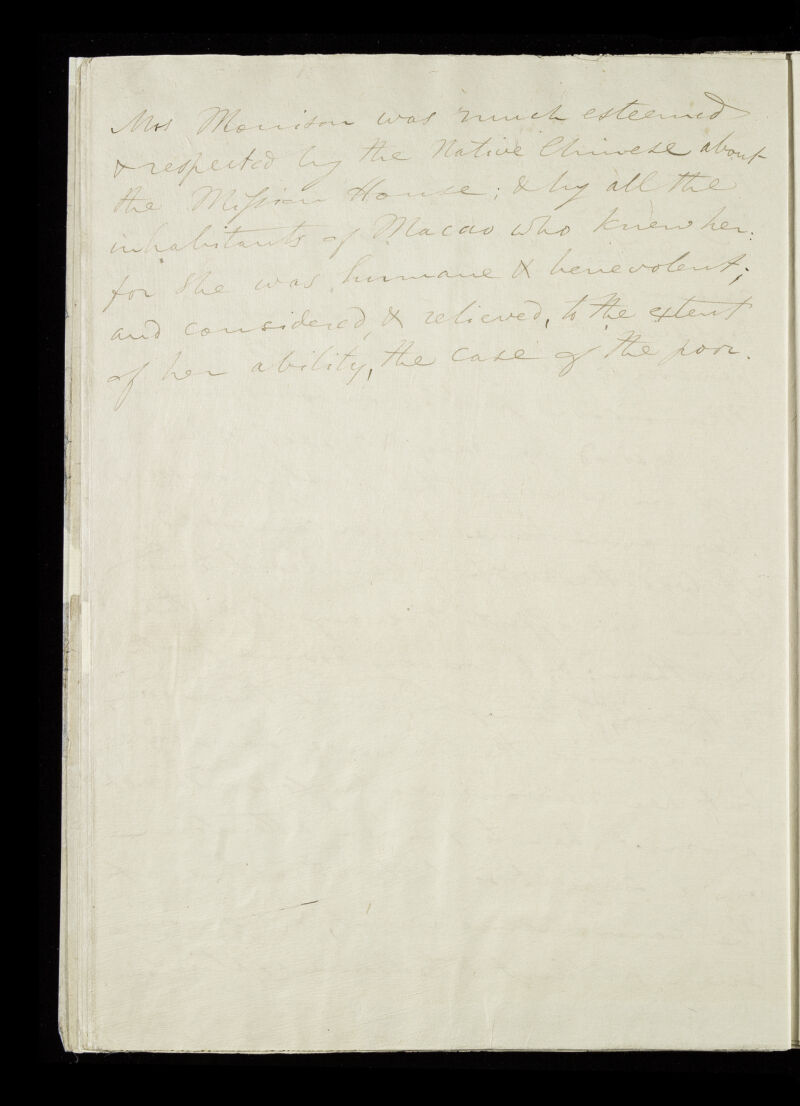 Mrs Morrison was much esteemed
& respected by the Native Chinese about
the Mission House; & by all the
inhabitants of Macao who knew her:
for She was humane & benevolent;
and considered, & relieved, to the extent
of her ability, the case of the poor.